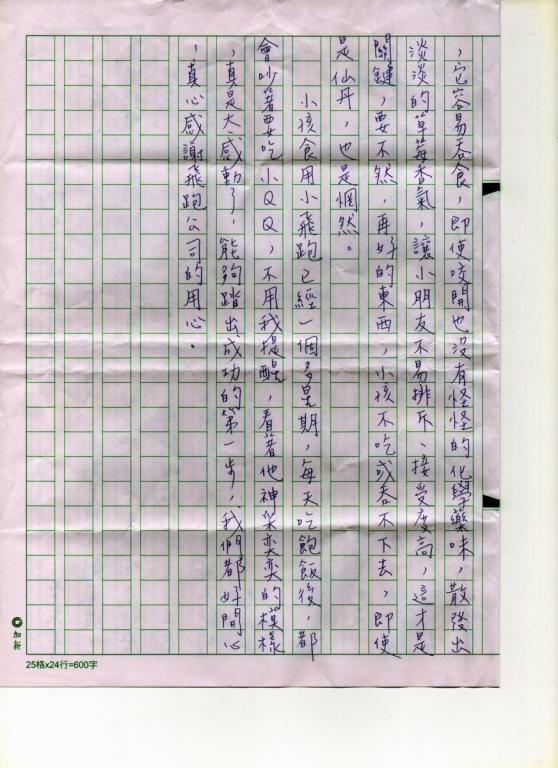 ，它容易吞食，即使咬開也沒有怪怪的化學藥味，散發出
淡淡的草莓香氣，讓小朋友不易排斥、接受度高，這才是
關鍵，要不然，再好的東西，小孩不吃或吞不下去，即使
是仙丹，也是惘然。
小孩食用小飛跑已經一個多星期，每天吃飽飯後，都
會吵著要吃小QQ，不用我提醒，看著他神采奕奕的模樣
，真是太感動了，能夠踏出成功的第一步，我們都好開心
，真心感謝飛跑公司的用心。
加新
25格x24行=600字